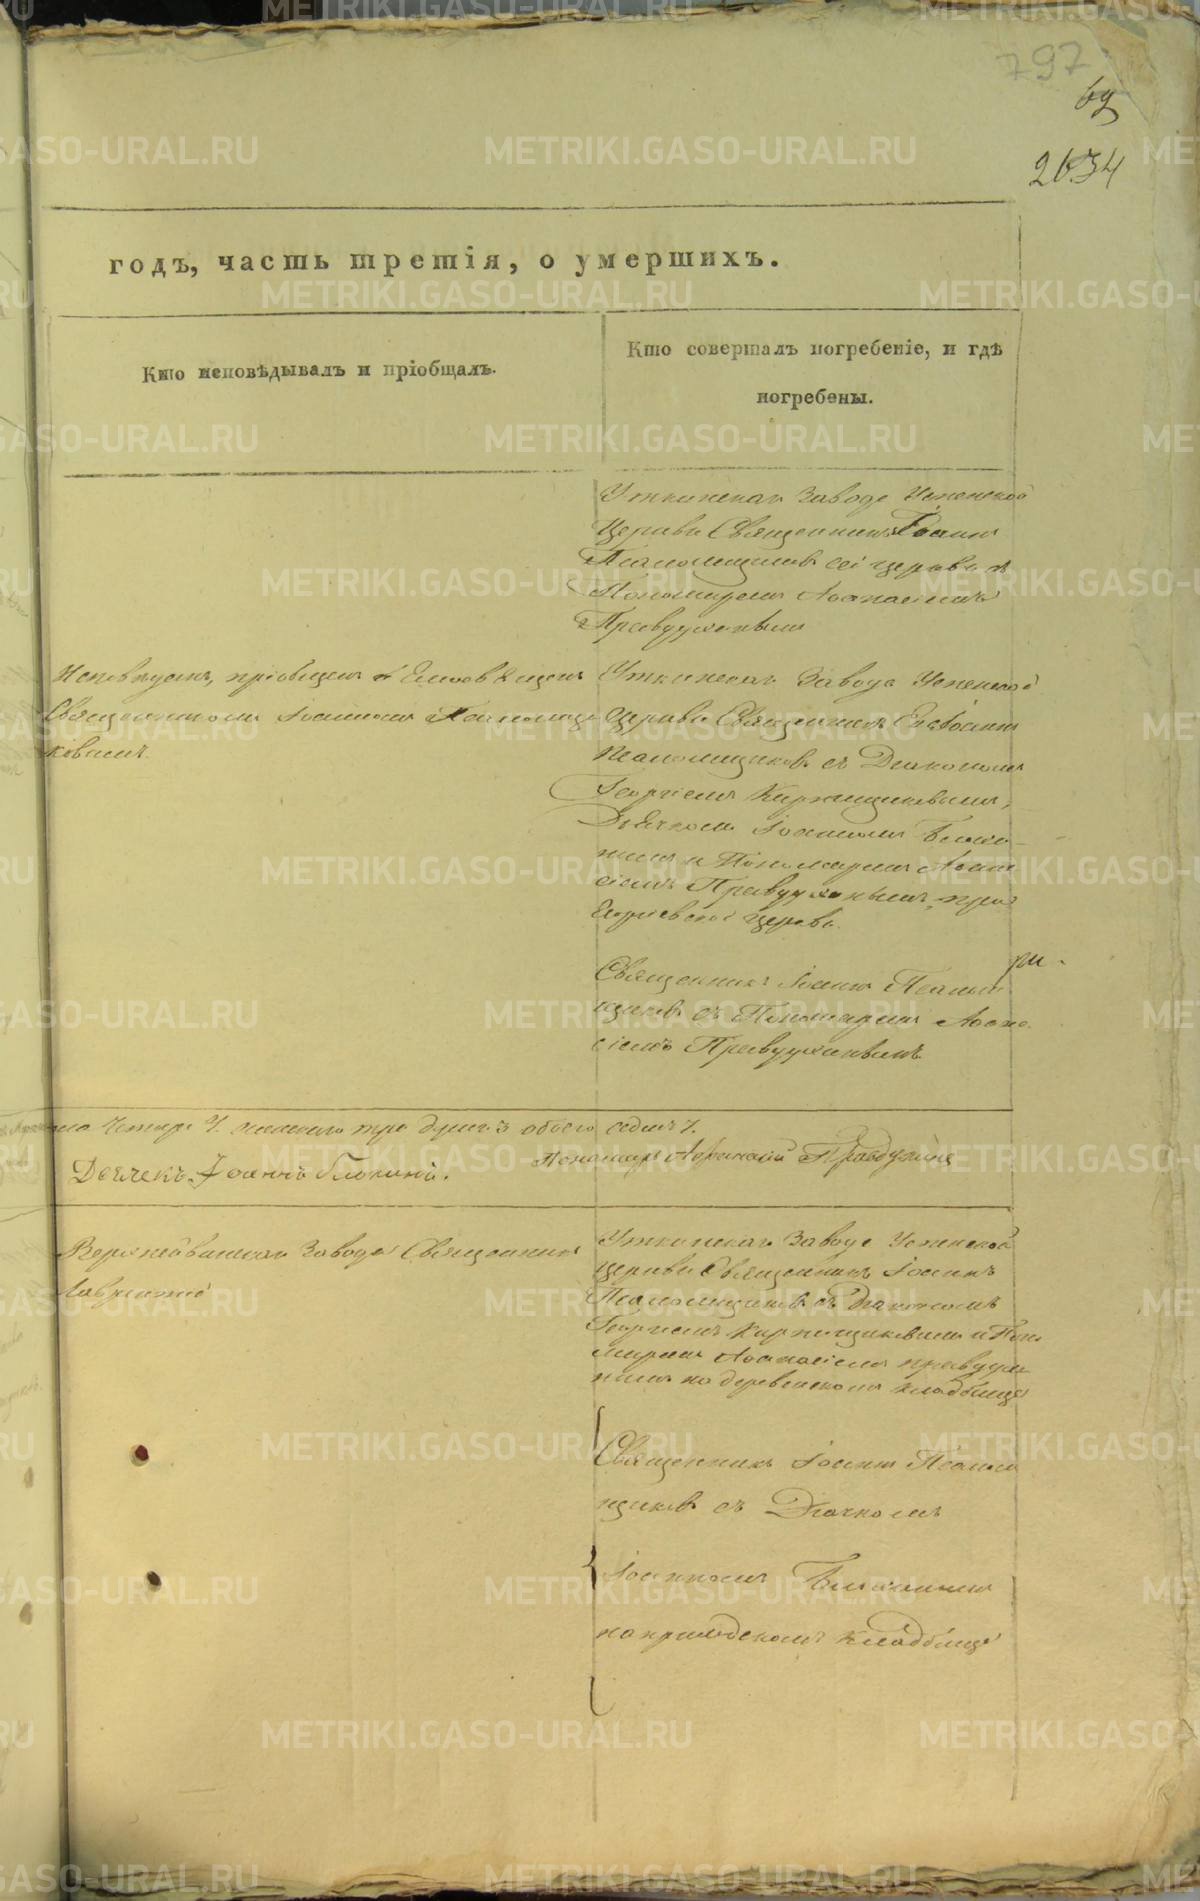 797
69
2634
годъ, часть третія, о умершихъ.
Кто исповѣдывалъ и пріобщалъ.
Кто совершалъ погребеніе, и гдѣ
погребены.
Уткинскаго Завода Успенской
Церкви Священникъ Іоаннъ
Псаломщиковъ сей церкви съ
Пономаремъ Афанасіемъ
Правдухинымъ
пріобщенъ
Священникомъ Іоанномъ Псаломщи
ковымъ.
Уткинскаго Завода Успенской
церкви Священникъ Іоаннъ
Псаломщиковъ съ Діакономъ
Георгіемъ Кирпищиковымъ,
Дьячкомъ Іоанномъ Блохи
нымъ и Пономаремъ Афана
сіемъ Правдухинымъ при
церкви
Священникъ Іоаннъ Псалом
щиковъ съ Пономаремъ Афана
сіемъ Правдухинымъ.
три души 3 обоего седмь 7.
Дьячекъ Іоаннъ Блохинъ.
Пономарь Афанасій Правдухинъ
Завода Священникъ
Лаврентій
Уткинскаго Завода Успенской
церкви Священникъ Іоаннъ
Псаломщиковъ съ Діакономъ
Георгіемъ Кирпищиковымъ и Поно
маремъ Афанасіемъ Правдухи
нымъ на деревенскомъ кладбище
Священникъ Іоаннъ Псалом
щиковъ съ Дьячкомъ
Іоанномъ Блохинымъ
на приходскомъ кладбище
METRIKI.GASO-URAL.RU